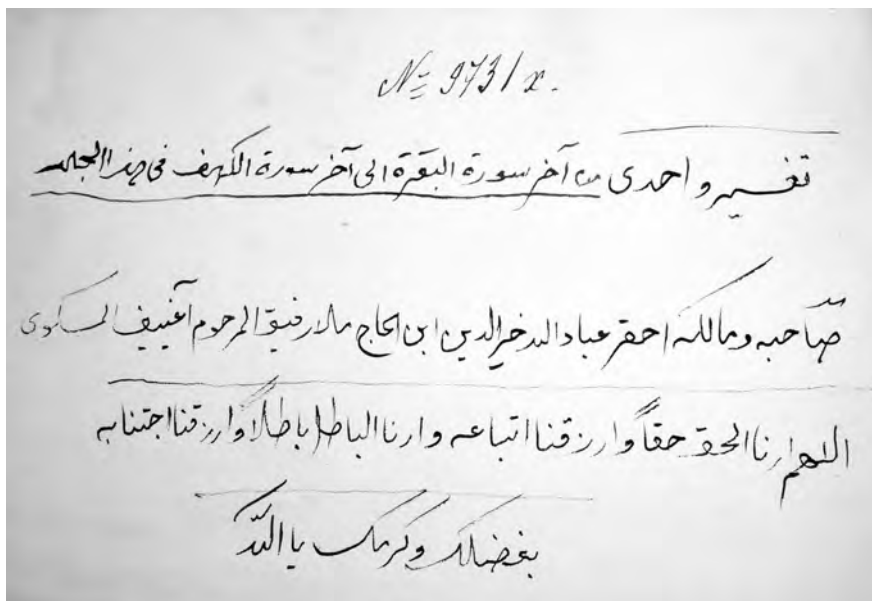 № 9731 x.
تفسير واحدى من آخر سورة البقرة الى آخر سورة الكهف فى هذا المجلد
صاحبه ومالكه احقر عباد الله خير الدين ابن الحاج ملا رفيق المرحوم آغييف
اللهم ارنا الحق حقاً وارزقنا اتباعه وارنا الباطل باطلاً وارزقنا اجتنابه
بفضلك وكرمك يا الله